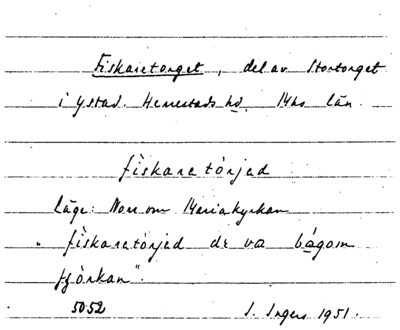 Fiskaretorget, del av Stortorget
i Ystad. Herrestads hd. Mhs län.
fiskaretórjed
Läge: Norr om Mariakyrkan
"fiskaretórjed de va bágom
tjórkan".
5052 I. Ingers 1951.